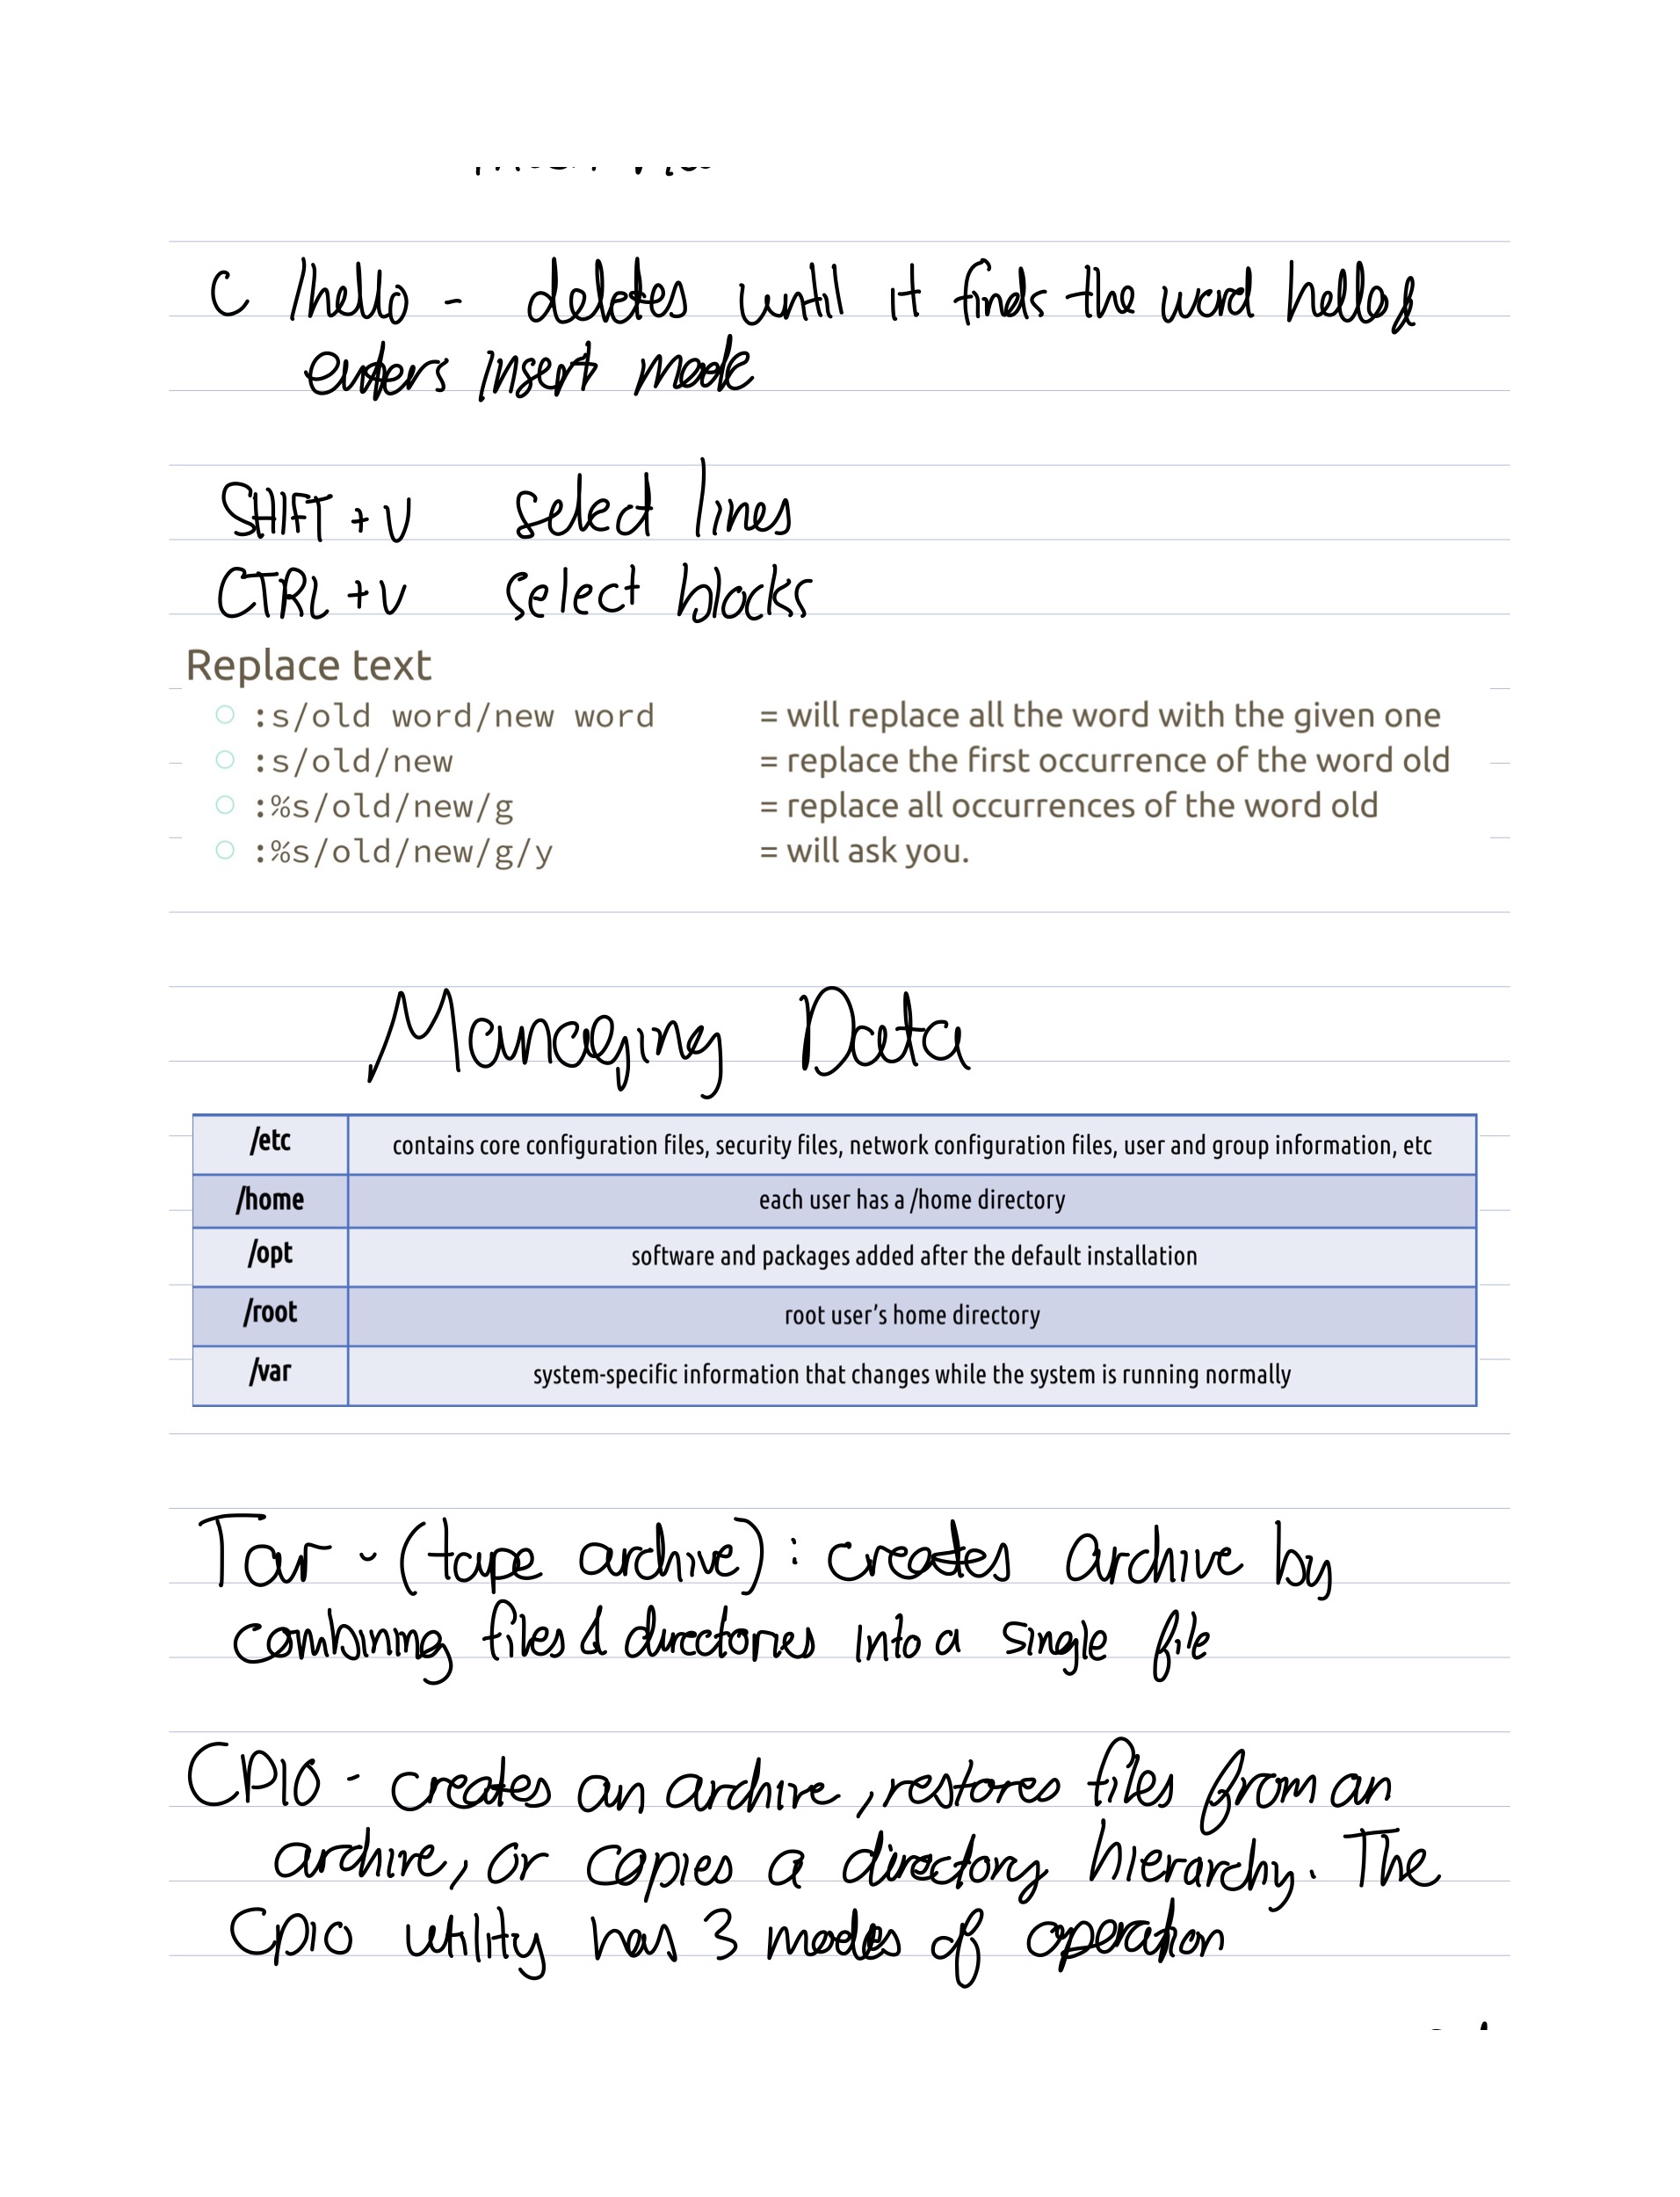 c /hello - deletes until it finds the word hello &
enters insert mode
SHIFT + v select lines
CTRL + v select blocks
Replace text
:s/old word/new word = will replace all the word with the given one
:s/old/new = replace the first occurrence of the word old
:%s/old/new/g = replace all occurrences of the word old
:%s/old/new/g/y = will ask you.
Managing Data
/etc contains core configuration files, security files, network configuration files, user and group information, etc
/home each user has a /home directory
/opt software and packages added after the default installation
/root root user's home directory
/var system-specific information that changes while the system is running normally
Tar - (tape archive) : creates archive by
combining files & directories into a single file
CPIO - creates an archive, restores files from an
archive, or copies a directory hierarchy. The
Cpio utility has 3 modes of operation